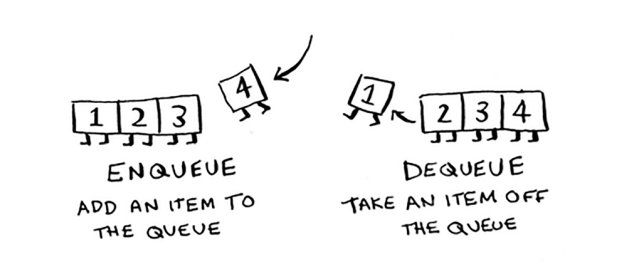 1 2 3
4
ENQUEUE
ADD AN ITEM TO
THE QUEUE
1
2 3 4
DEQUEUE
TAKE AN ITEM OFF
THE QUEUE